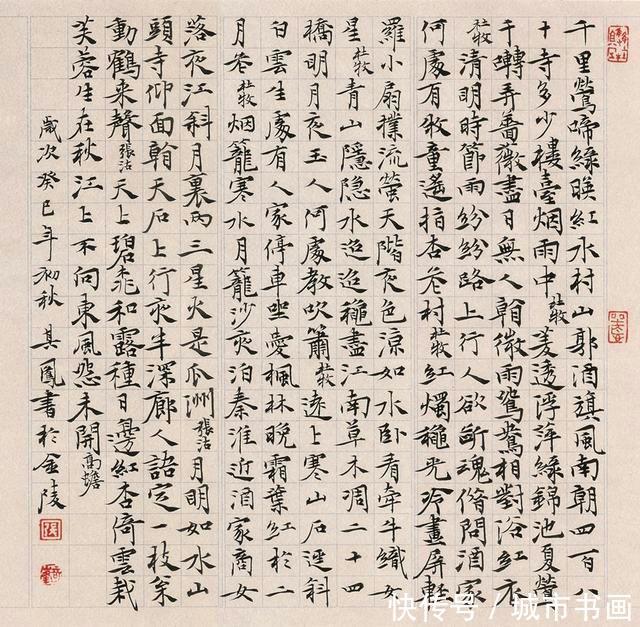 千里鶯啼綠暎紅水村山郭酒旗風南朝四百八
十寺多少樓臺烟雨中杜牧菱透浮萍綠錦池夏鶯
千囀弄薔薇盡日無人看微雨鴛鴦相對浴紅衣
杜牧清明時節雨紛紛路上行人欲斷魂借問酒家
何處有牧童遙指杏花村杜牧紅燭穐光冷畫屏輕
羅小扇撲流螢天階夜色涼如水臥看牽牛織女
星杜牧青山隱隱水迢迢穐盡江南草木凋二十四
橋明月夜玉人何處教吹簫杜牧遠上寒山石逕斜
白雲生處有人家停車坐愛楓林晚霜葉紅於二
月花杜牧烟籠寒水月籠沙夜泊秦淮近酒家商女
落夜江斜月裏兩三星火是瓜洲張祜月明如水山
頭寺仰面看天石上行夜半深廊人語定一枝枀
動鶴来聲張祜天上碧桃和露種日邊紅杏倚雲栽
芙蓉生在秋江上不向東風怨未開高蟾
歲次癸巳年初秋其鳳書於金陵
快传号/城市书画